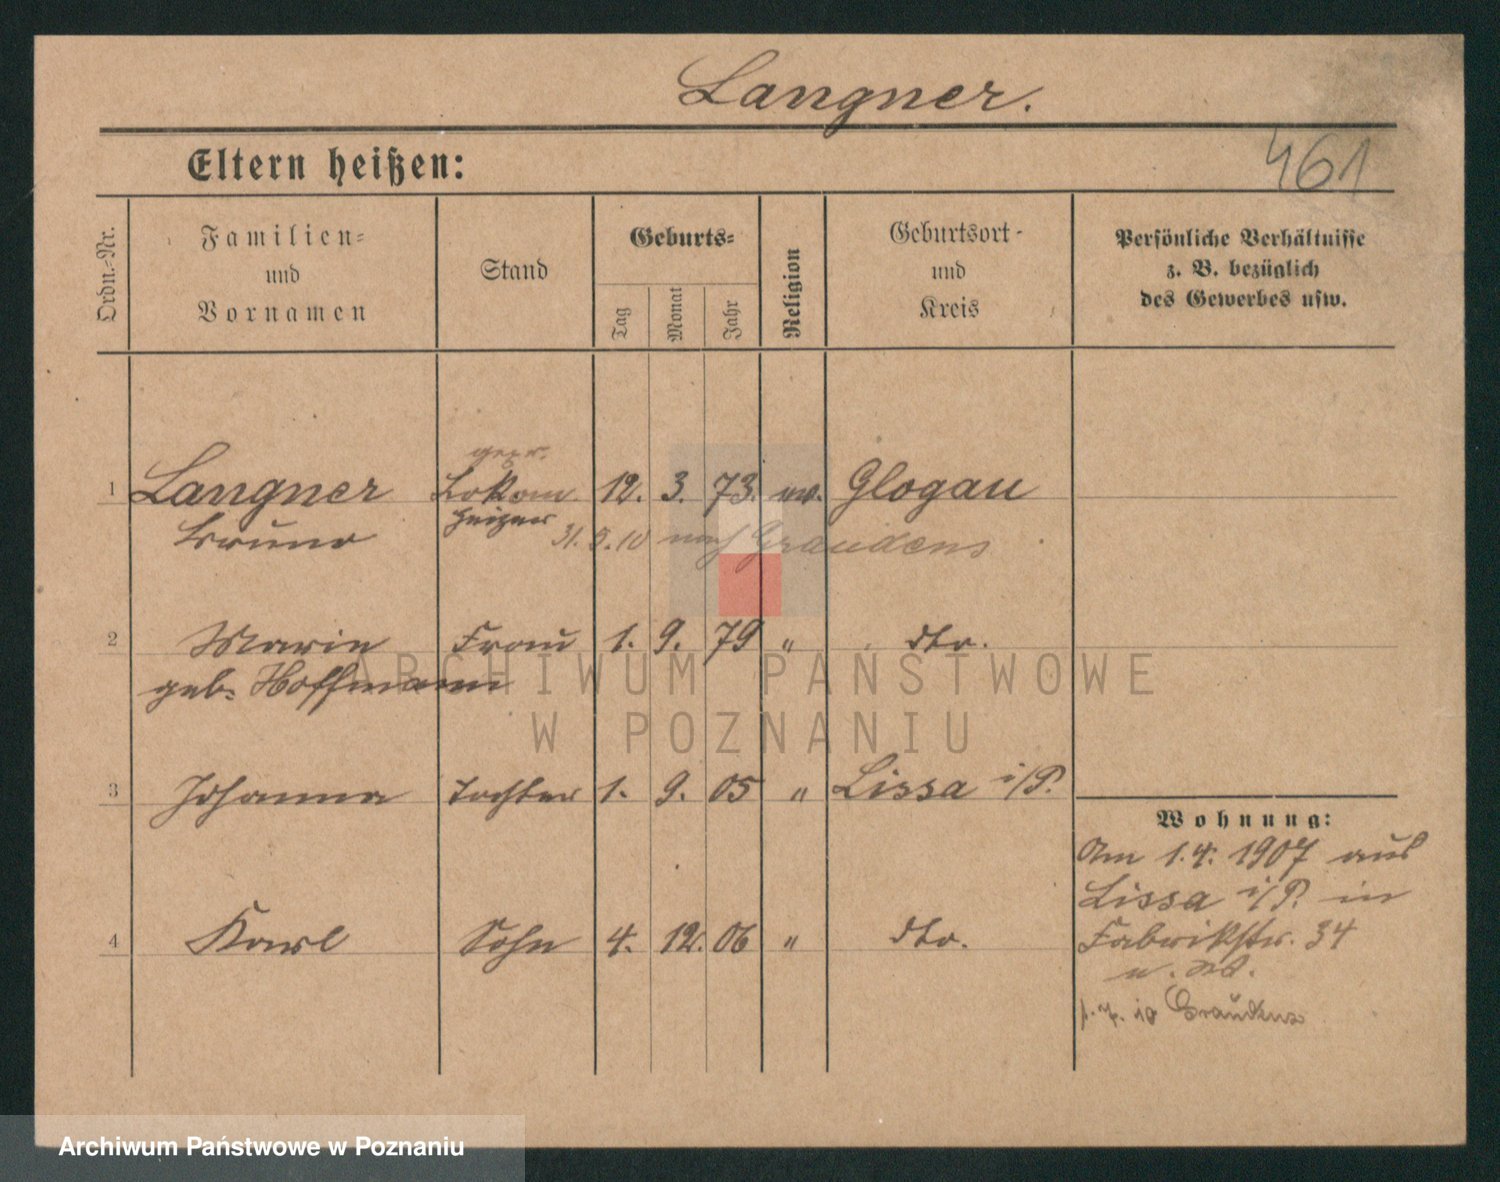 Langner.
461
Eltern heißen:
Ordn.-Nr.
Familien-
und
Vornamen
Stand
Geburts-
Tag
Monat
Jahr
Religion
Geburtsort-
und
Kreis
Persönliche Verhältnisse
z. B. bezüglich
des Gewerbes usw.
gepr.
1 Langner Lokom. 12. 3. 73. ev. Glogau
Bruno Heizer
31. 10 nach Graudenz
2 Marie Frau 1. 9. 79 " dto.
geb. Hoffmann
3 Johanna Tochter 1. 9. 05 " Lissa i/P.
4 Karl Sohn 4. 12. 06 " dto.
Wohnung:
Am 1.4. 1907 aus
Lissa i/P. in
Fabrikstr. 34
Graudenz
ARCHIWUM PAŃSTWOWE
W POZNANIU
Archiwum Państwowe w Poznaniu